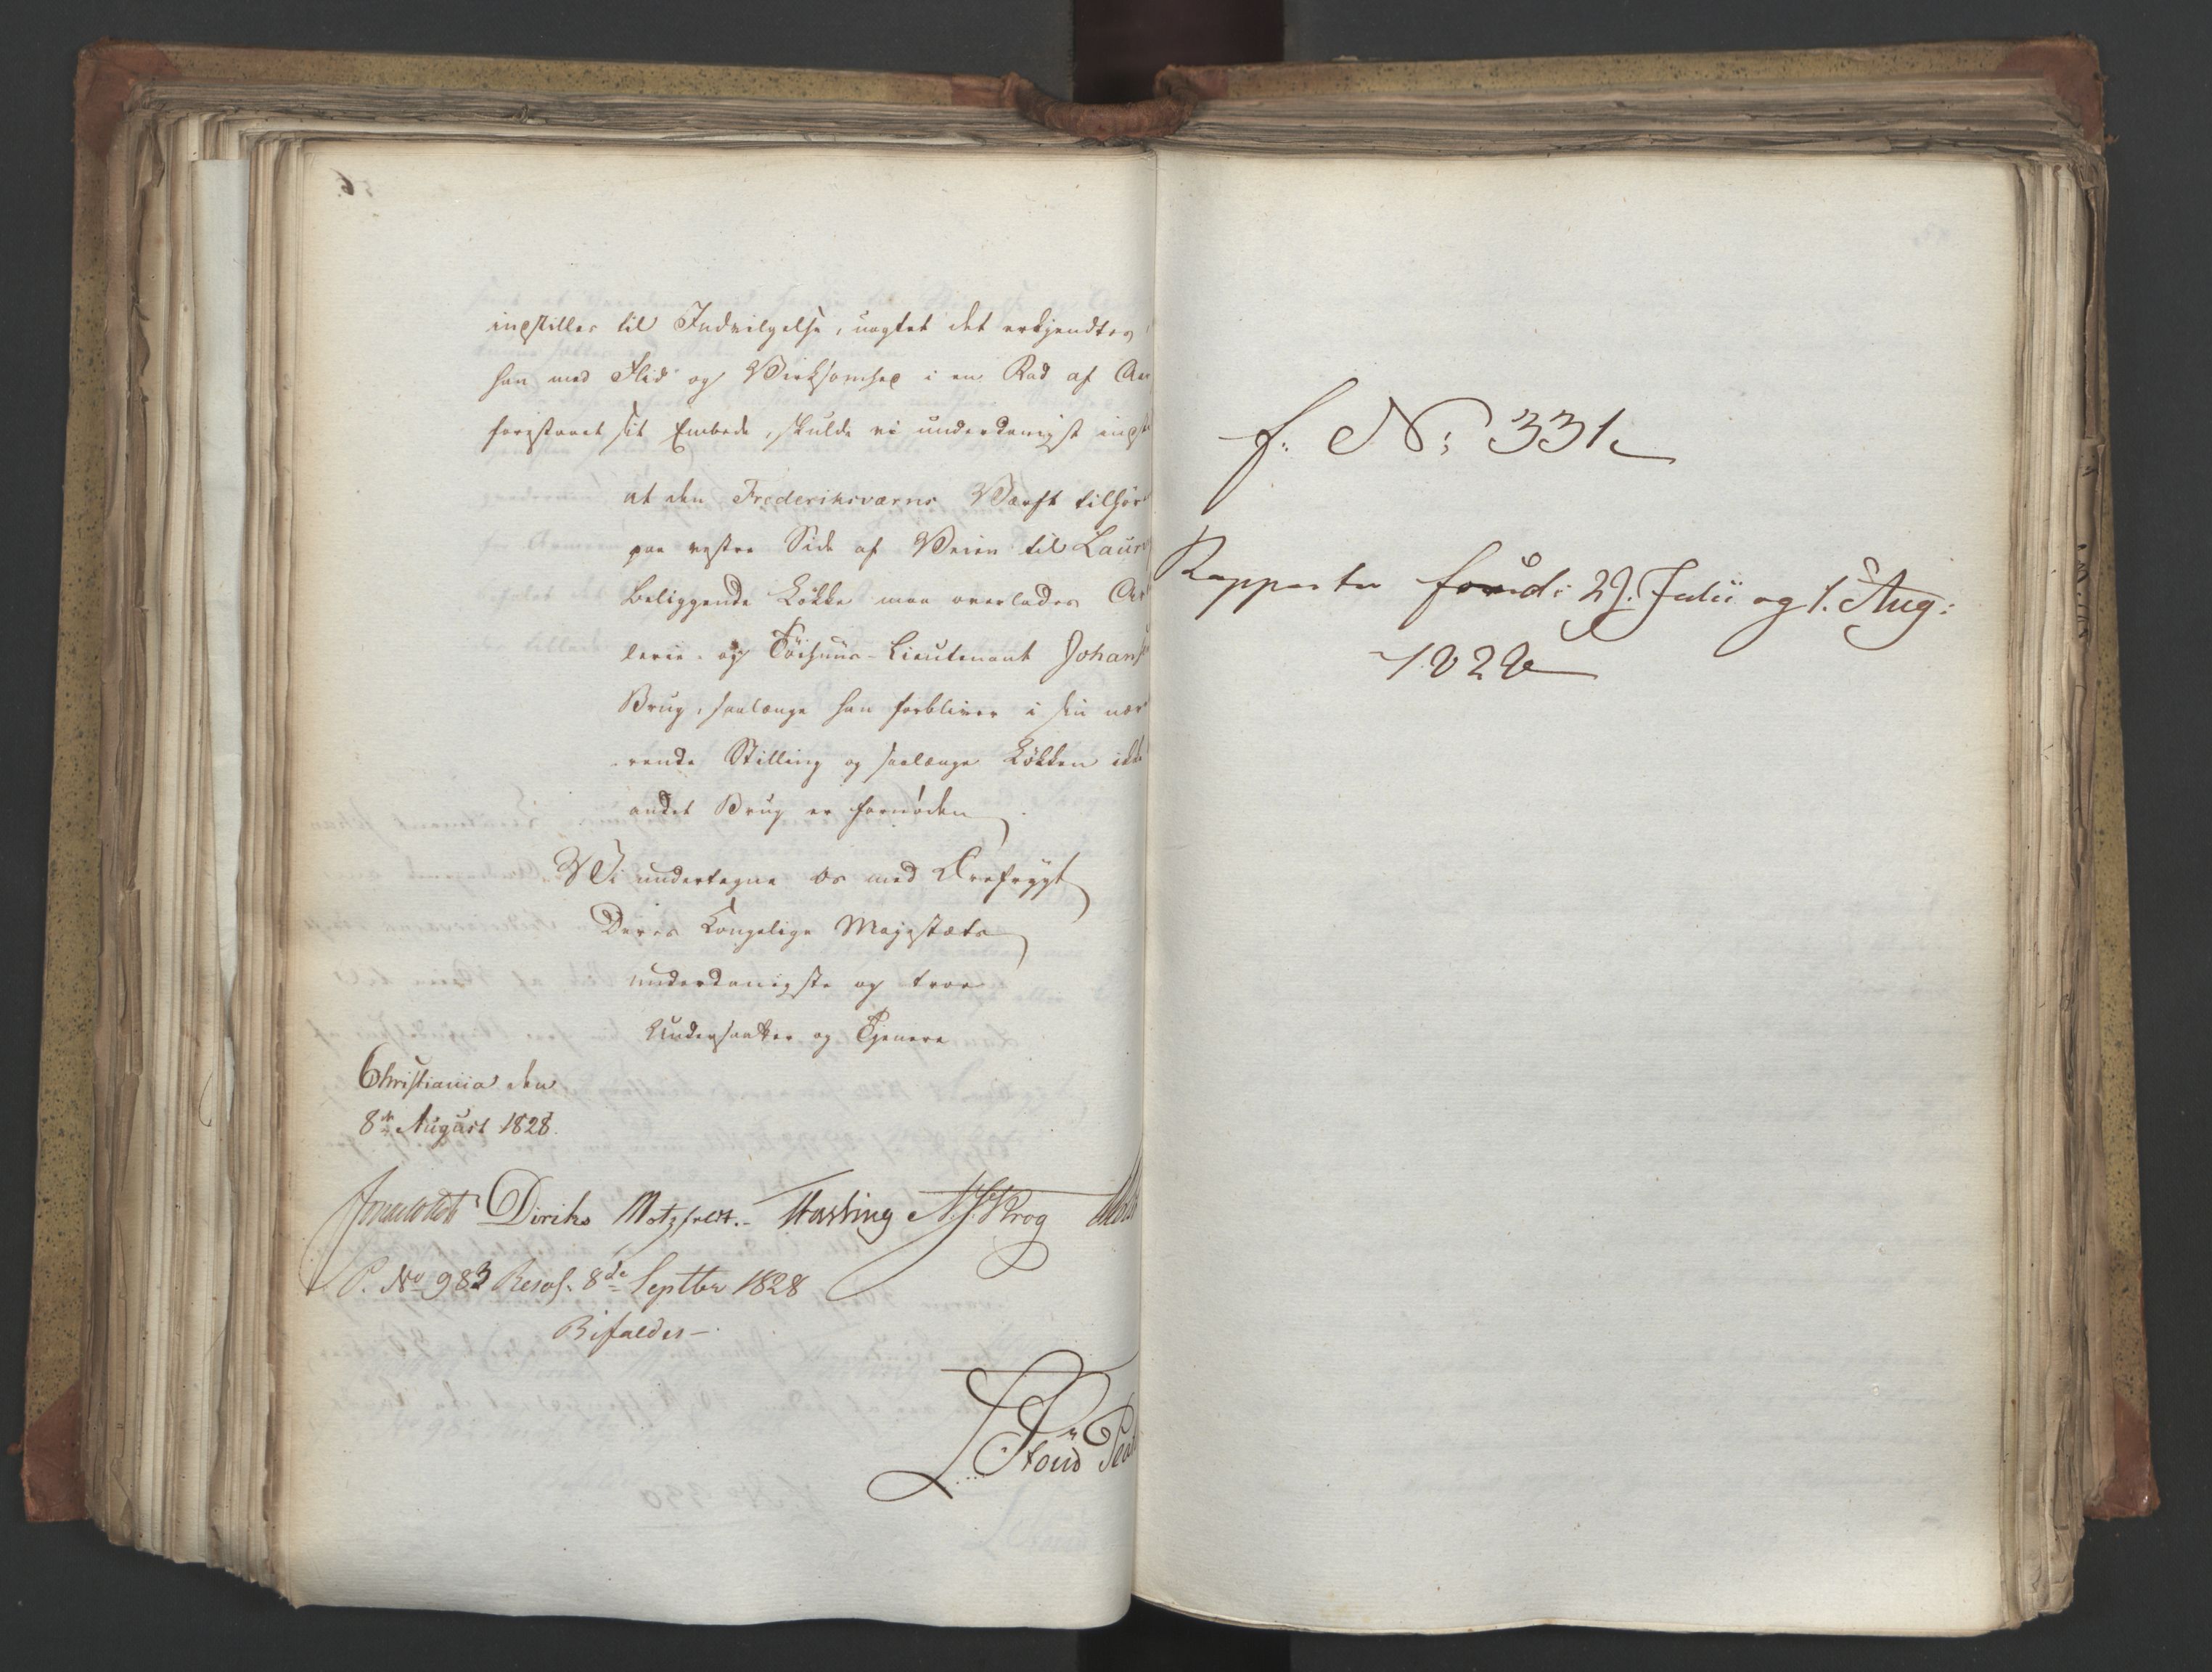 6.
inpstilles til Indvilgelse, uagtet det erkjendtes
han med Flid og Virksomhed i en Rad af Aar
forestaaet sit Embede, skulde vi underdanigst inpst
at den Frederiksværns Værft tilhør
paa vestre Side af Veien til Laur
beliggende Løkke maa overlades Ar
lerie- og Tøihuus-Lieutenant Johans
Brug, saalænge han forbliver i sin nær
rende Stilling og saalænge Løkken ikke
andet Brug er fornøden.
Vi undertegne os med Ærefrygt
Deres Kongelige Majestæts
underdanigste og troe
Undersaatter og Tjenere
Christiania den
8de August 1828.
Diriks Motzfeldt.- Fasting N. J. Krog
P. No 983 Resol. 8de Septbr 1828
Bifaldes-
f. No: 331
Rapporter for d: 29. Julii og 1. Aug:
1828